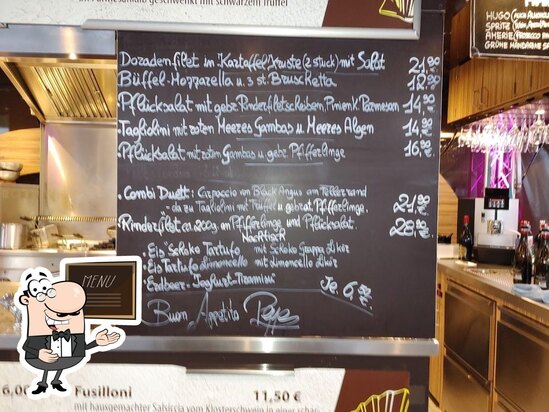 geschwenkt mit schwarzem Trüffel
Doradenfilet in Kartoffel Kruste (2 stück) mit Salat 21,90
Büffel-Mozzarella u 3 st Bruschetta 12,90
Pflücksalat mit gebr. Rinderfiletscheiben, Pinienk. Parmesan 14,90
Tagliolini mit roten Meeres Gambas u Meeres Algen 14,90
Pflücksalat mit roten Gambas u gebr. Pfifferlinge 16,90 €
Combi Duett: Carpaccio von Black Angus am Tellerrand
- dazu Tagliolini mit Trüffel u gebrat. Pfifferlinge. 21,90 €
Rinderfilet ca 200g an Pfifferlinge und Pflücksalat. 28,90 €
Nachtisch
Eis "Schoko Tartufo mit Schoko Grappa Likör
Eis Tartufo Limoncello mit Limoncello Likör
"Erdbeer-Joghurt-Tiramisu" Je. 6,50 €
Buon Appetito Pepe
HUGO
SPRITZ
AMERIE (PROSECCO
GRÜNE MANDARINE
MENU
6,00
Fusilloni 11,50 €
mit hausgemachter Salsiccia vom Klosterschwein in einer